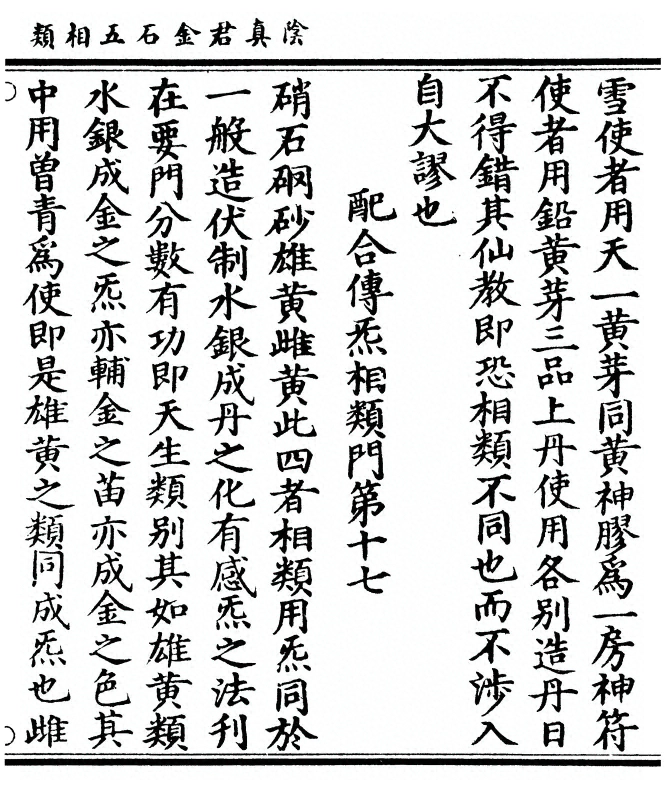 陰真君金石五相類
雪使者用天一黄芽同黄神膠爲一房神符
使者用鉛黄芽三品上丹使用各别造丹日
不得錯其仙教即恐相類不同也而不涉入
自大謬也
配合傳炁相類門第十七
硝石硇砂雄黄雌黄此四者相類用炁同於
一般造伏制水銀成丹之化有感炁之法刋
在要門分數有功即天生類别其如雄黄類
水銀成金之炁亦輔金之苗亦成金之色其
中用曽青爲使即是雄黄之類同成炁也雌